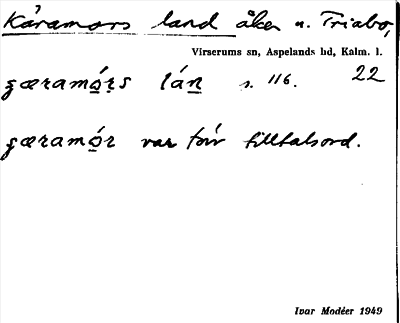 Käramors land åker n. Triabo,
Virserums sn, Aspelands hd, Kalm. l.
çæramǫ́rs lán s. 116. 22
çæramǫ́r var förr tilltalsord.
Ivar Modéer 1949